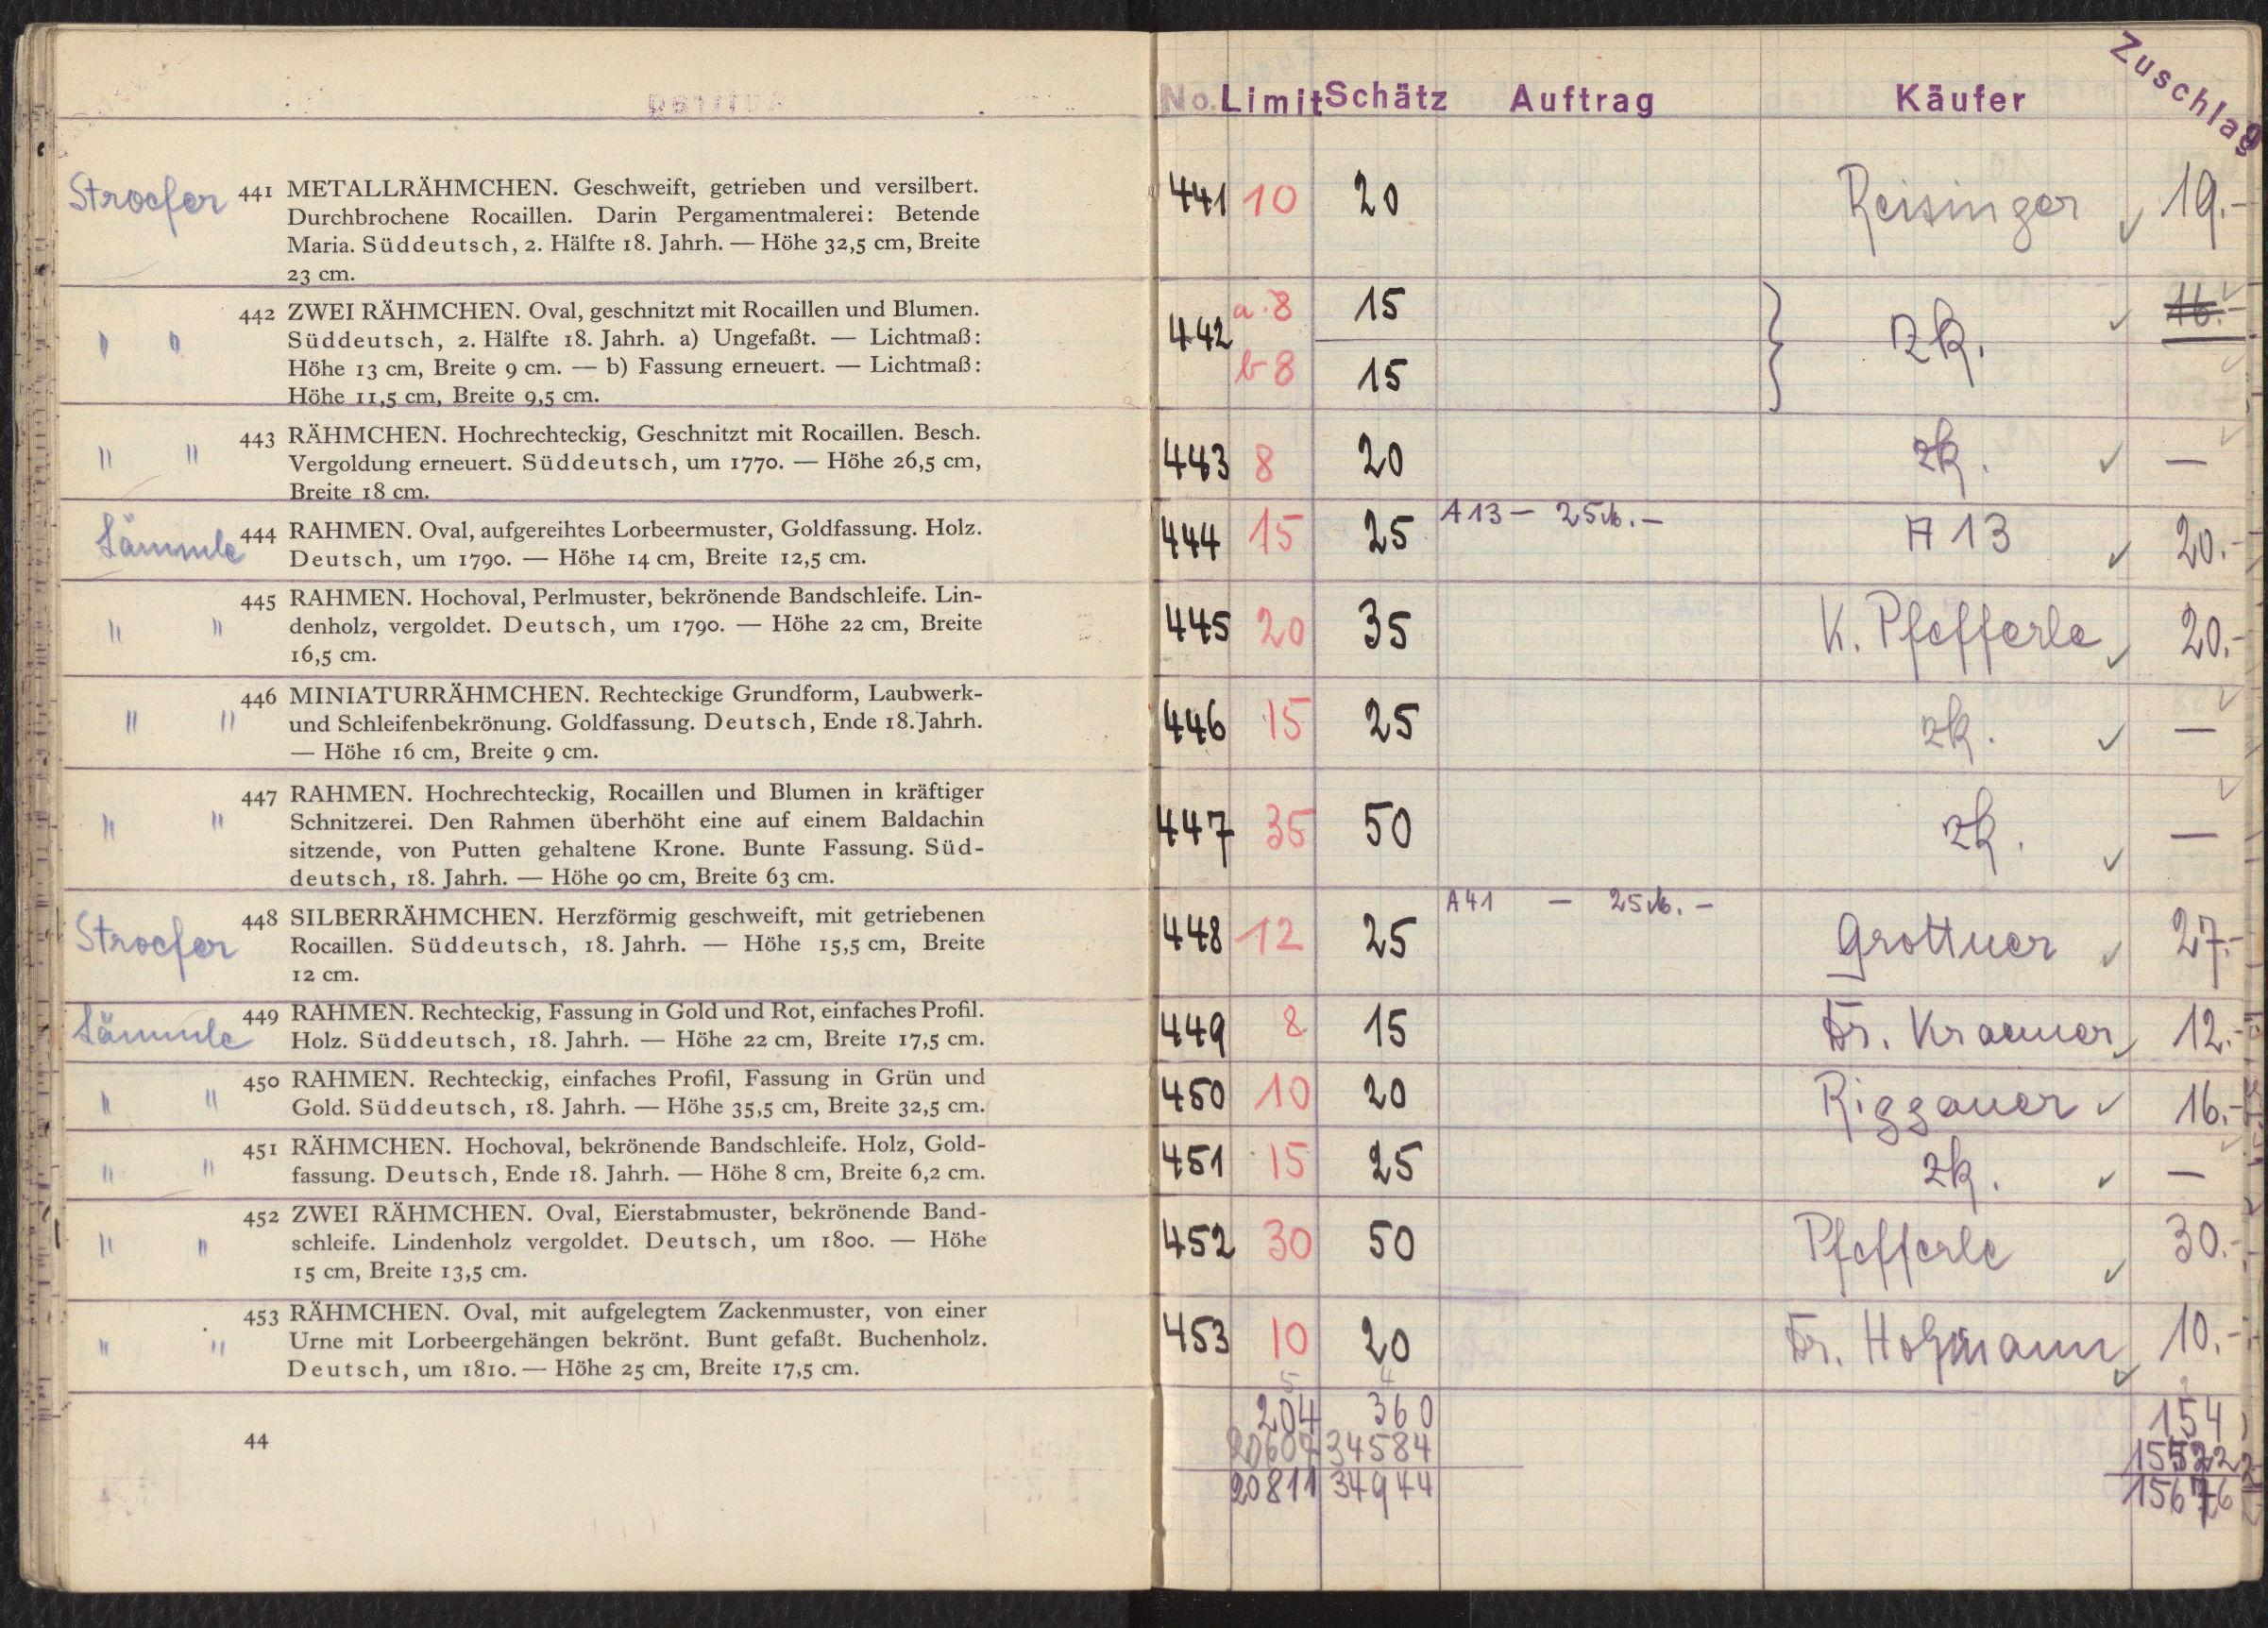 Stroefer 441 METALLRÄHMCHEN. Geschweift, getrieben und versilbert.
Durchbrochene Rocaillen. Darin Pergamentmalerei: Betende
Maria. Süddeutsch, 2. Hälfte 18. Jahrh. — Höhe 32,5 cm, Breite
23 cm.
" " 442 ZWEI RÄHMCHEN. Oval, geschnitzt mit Rocaillen und Blumen.
Süddeutsch, 2. Hälfte 18. Jahrh. a) Ungefaßt. — Lichtmaß:
Höhe 13 cm, Breite 9 cm. — b) Fassung erneuert. — Lichtmaß:
Höhe 11,5 cm, Breite 9,5 cm.
" " 443 RÄHMCHEN. Hochrechteckig, Geschnitzt mit Rocaillen. Besch.
Vergoldung erneuert. Süddeutsch, um 1770. — Höhe 26,5 cm,
Breite 18 cm.
Lämmle 444 RAHMEN. Oval, aufgereihtes Lorbeermuster, Goldfassung. Holz.
Deutsch, um 1790. — Höhe 14 cm, Breite 12,5 cm.
" " 445 RAHMEN. Hochoval, Perlmuster, bekrönende Bandschleife. Lin-
denholz, vergoldet. Deutsch, um 1790. — Höhe 22 cm, Breite
16,5 cm.
" " 446 MINIATURRÄHMCHEN. Rechteckige Grundform, Laubwerk-
und Schleifenbekrönung. Goldfassung. Deutsch, Ende 18. Jahrh.
— Höhe 16 cm, Breite 9 cm.
" " 447 RAHMEN. Hochrechteckig, Rocaillen und Blumen in kräftiger
Schnitzerei. Den Rahmen überhöht eine auf einem Baldachin
sitzende, von Putten gehaltene Krone. Bunte Fassung. Süd-
deutsch, 18. Jahrh. — Höhe 90 cm, Breite 63 cm.
Stroefer 448 SILBERRÄHMCHEN. Herzförmig geschweift, mit getriebenen
Rocaillen. Süddeutsch, 18. Jahrh. — Höhe 15,5 cm, Breite
12 cm.
Lämmle 449 RAHMEN. Rechteckig, Fassung in Gold und Rot, einfaches Profil.
Holz. Süddeutsch, 18. Jahrh. — Höhe 22 cm, Breite 17,5 cm.
" " 450 RAHMEN. Rechteckig, einfaches Profil, Fassung in Grün und
Gold. Süddeutsch, 18. Jahrh. — Höhe 35,5 cm, Breite 32,5 cm.
" " 451 RÄHMCHEN. Hochoval, bekrönende Bandschleife. Holz, Gold-
fassung. Deutsch, Ende 18. Jahrh. — Höhe 8 cm, Breite 6,2 cm.
" " 452 ZWEI RÄHMCHEN. Oval, Eierstabmuster, bekrönende Band-
schleife. Lindenholz vergoldet. Deutsch, um 1800. — Höhe
15 cm, Breite 13,5 cm.
" " 453 RÄHMCHEN. Oval, mit aufgelegtem Zackenmuster, von einer
Urne mit Lorbeergehängen bekrönt. Bunt gefaßt. Buchenholz.
Deutsch, um 1810. — Höhe 25 cm, Breite 17,5 cm.
44
No. Limit Schätz Auftrag Käufer Zuschlag
441 10 20 Reisinger ✓ 19.-
442 a. 8 15 } zk. ✓ 16.-
b 8 15
443 8 20 zk. ✓ —
444 15 25 A 13 — 25 M. — A 13 ✓ 20.-
445 20 35 K. Pfefferle ✓ 20.-
446 15 25 zk. ✓ —
447 35 50 zk. ✓ —
448 12 25 A 41 — 25 M. — Grottner ✓ 27.-
449 8 15 Fr. Kraemer ✓ 12.-
450 10 20 Riggauer ✓ 16.-
451 15 25 zk. ✓ —
452 30 50 Pfefferle ✓ 30.-
453 10 20 Fr. Holzmann ✓ 10.-
204 360 154
20607 34584 15522
20811 34944 15676